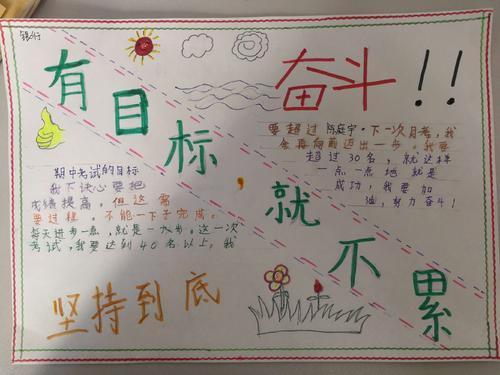 银行
有目标，就不累
奋斗！！
要超过陈庭宇。下一次月考，我
会再向前迈出一步。我要
超过30名，就这样
一点一点地就是
成功，我要加
油，努力奋斗！
期中考试的目标
我下决心要把
成绩提高，但这需
要过程。不能一下子完成。
每天进步一点，就是一大步。这一次
考试，我要达到40名以上，我
坚持到底